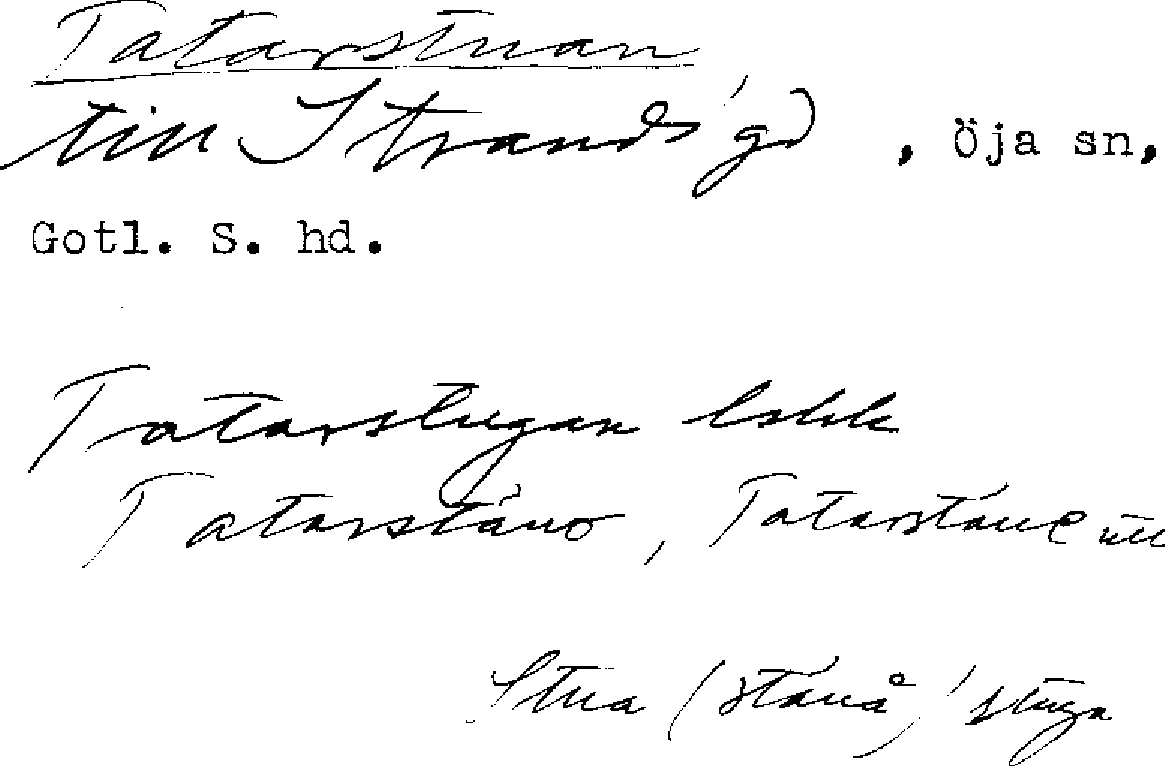 Tatarstuan
till Strands gd, Öja sn,
Gotl. S. hd.
Tatarstugan
Tatarstáuo, Tatarstáue
Stua (stáuå) 'stuga